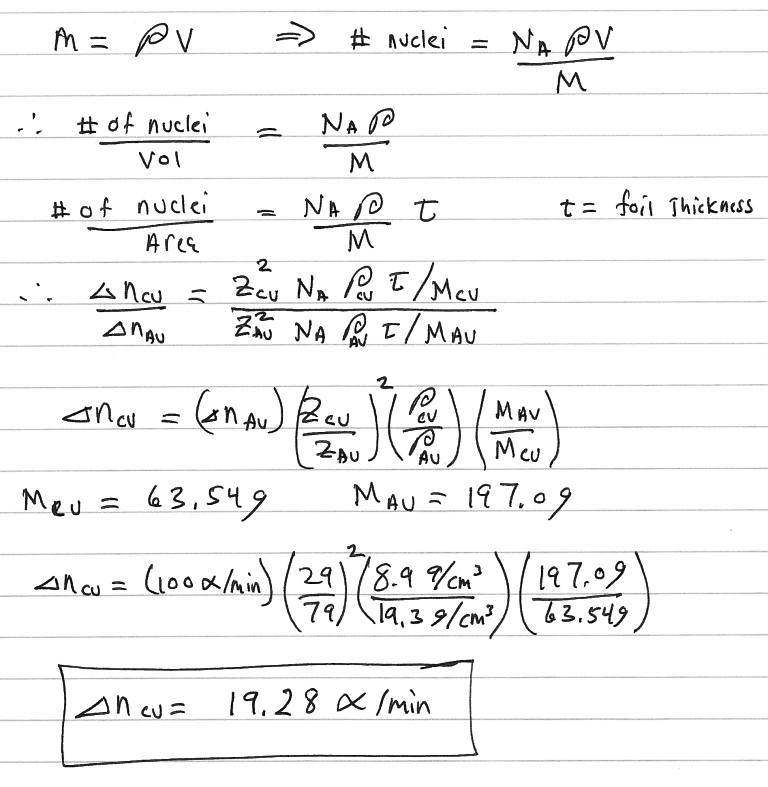 m = ρV ⇒ # nuclei = N_A ρV / M
∴ # of nuclei / Vol = N_A ρ / M
# of nuclei / Area = N_A ρ / M t t = foil Thickness
∴ Δn_Cu / Δn_Au = Z_Cu² N_A ρ_Cu t/M_Cu / Z_Au² N_A ρ_Au t/M_Au
Δn_Cu = (Δn_Au) (Z_Cu / Z_Au)² (ρ_Cu / ρ_Au) (M_Au / M_Cu)
M_Cu = 63.54g M_Au = 197.0g
Δn_Cu = (100 α/min) (29 / 79)² (8.9 g/cm³ / 19.3 g/cm³) (197.0g / 63.54g)
Δn_Cu = 19.28 α/min